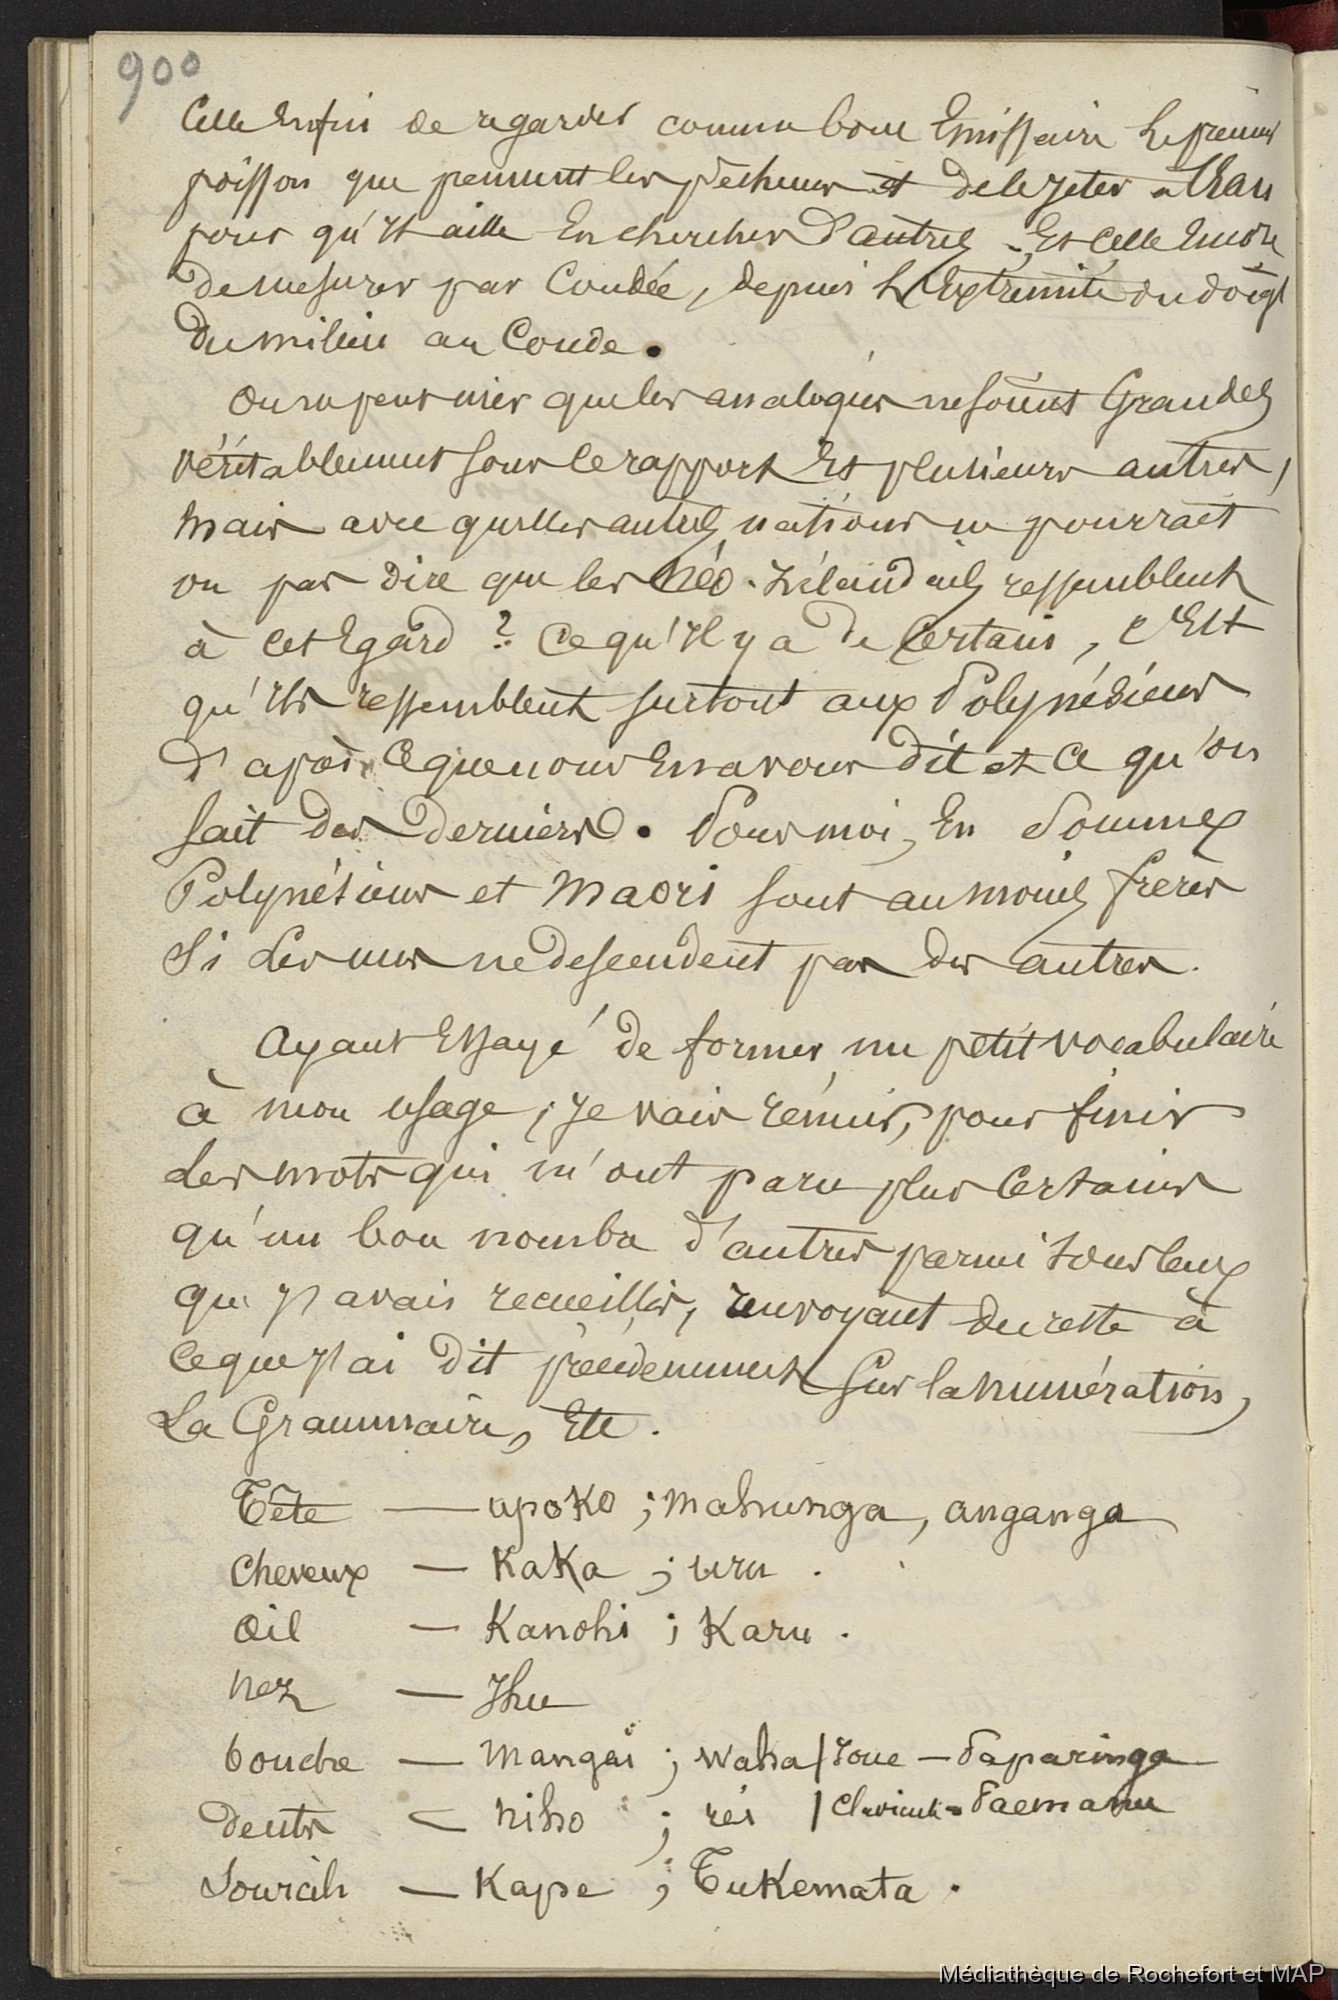 900
Celle enfin de regarder comme bouc Emissaire le premier
poisson que prennent les pêcheurs et de le jeter à l'eau
pour qu'il aille en chercher d'autres. Et celle encore
de mesurer par Coudée, depuis l'Extremité du doigt
du milieu au Coude.
On ne peut nier que les analogies ne soient Grandes
véritablement sous ce rapport et plusieurs autres,
mais avec quelles autres nations ne pourrait
on pas dire que les Néo-Zélandais ressemblent
à cet Egard ? Ce qu'il y a de Certain, c'Est
qu'ils ressemblent surtout aux Polynésiens
d'après ce que nous en avons dit et ce qu'on
sait des derniers. Pour moi, En Somme,
Polynésiens et Maori sont au moins frères
si les uns ne descendent pas des autres.
Ayant Essayé de former un petit vocabulaire
à mon usage, je vais réunir, pour finir
Les mots qui m'ont paru plus Certains
qu'un bon nombre d'autres parmi tous ceux
que j'avais recueillis, renvoyant du reste à
ce que j'ai dit précédemment sur la numération,
La Grammaire, Etc.
Tête — upoko ; mahunga, anganga
Cheveux — Kaka ; uru .
Oeil — Kanohi ; Karu .
Nez — Ihu
bouche — Mangai ; waha / Joue — Paparinga
Dents — niho ; rei / Clavicule = Paemanu
Sourcils — Kape ; Tukemata .
Médiathèque de Rochefort et MAP